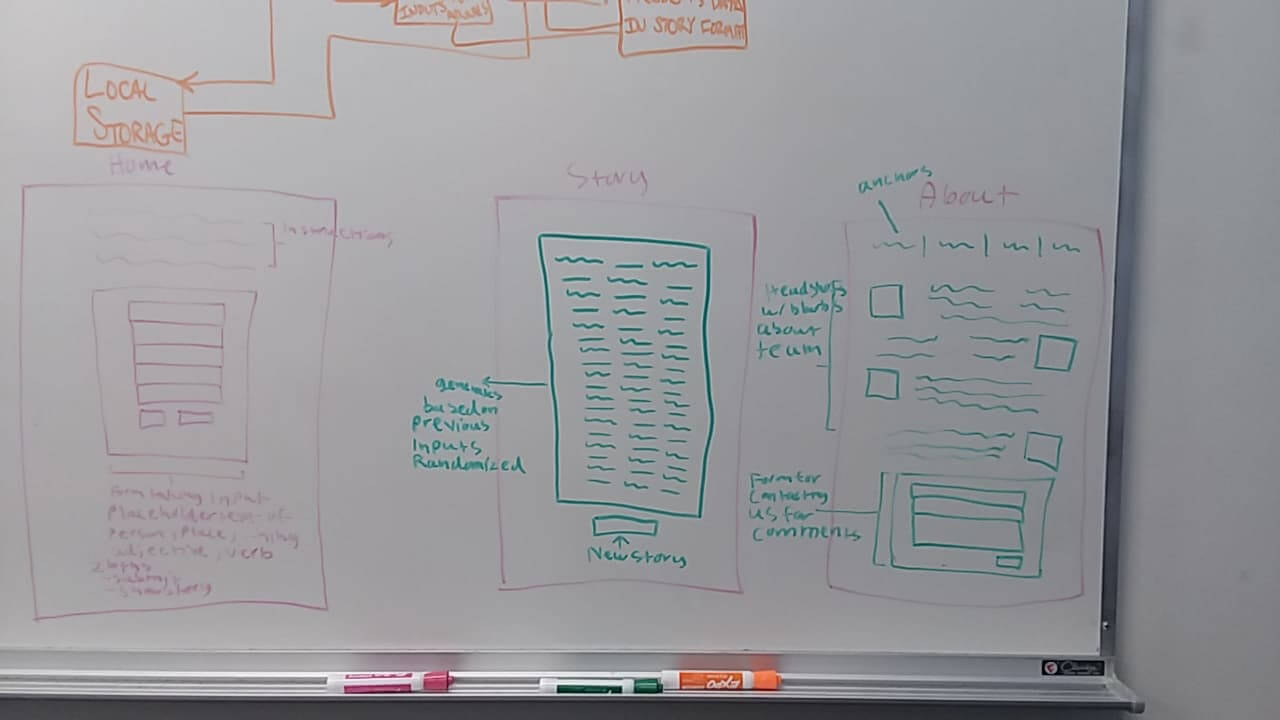 INPUTS
IN STORY FORMAT
LOCAL
STORAGE
Home
Instructions
Form taking input
Placeholder
Person, Place, thing
adjective, verb
Story
generates
based on
previous
Inputs
Randomized
New Story
anchors
About
Headshots
w/ blurbs
about
team
Form for
Contacting
us for
comments
EXPO